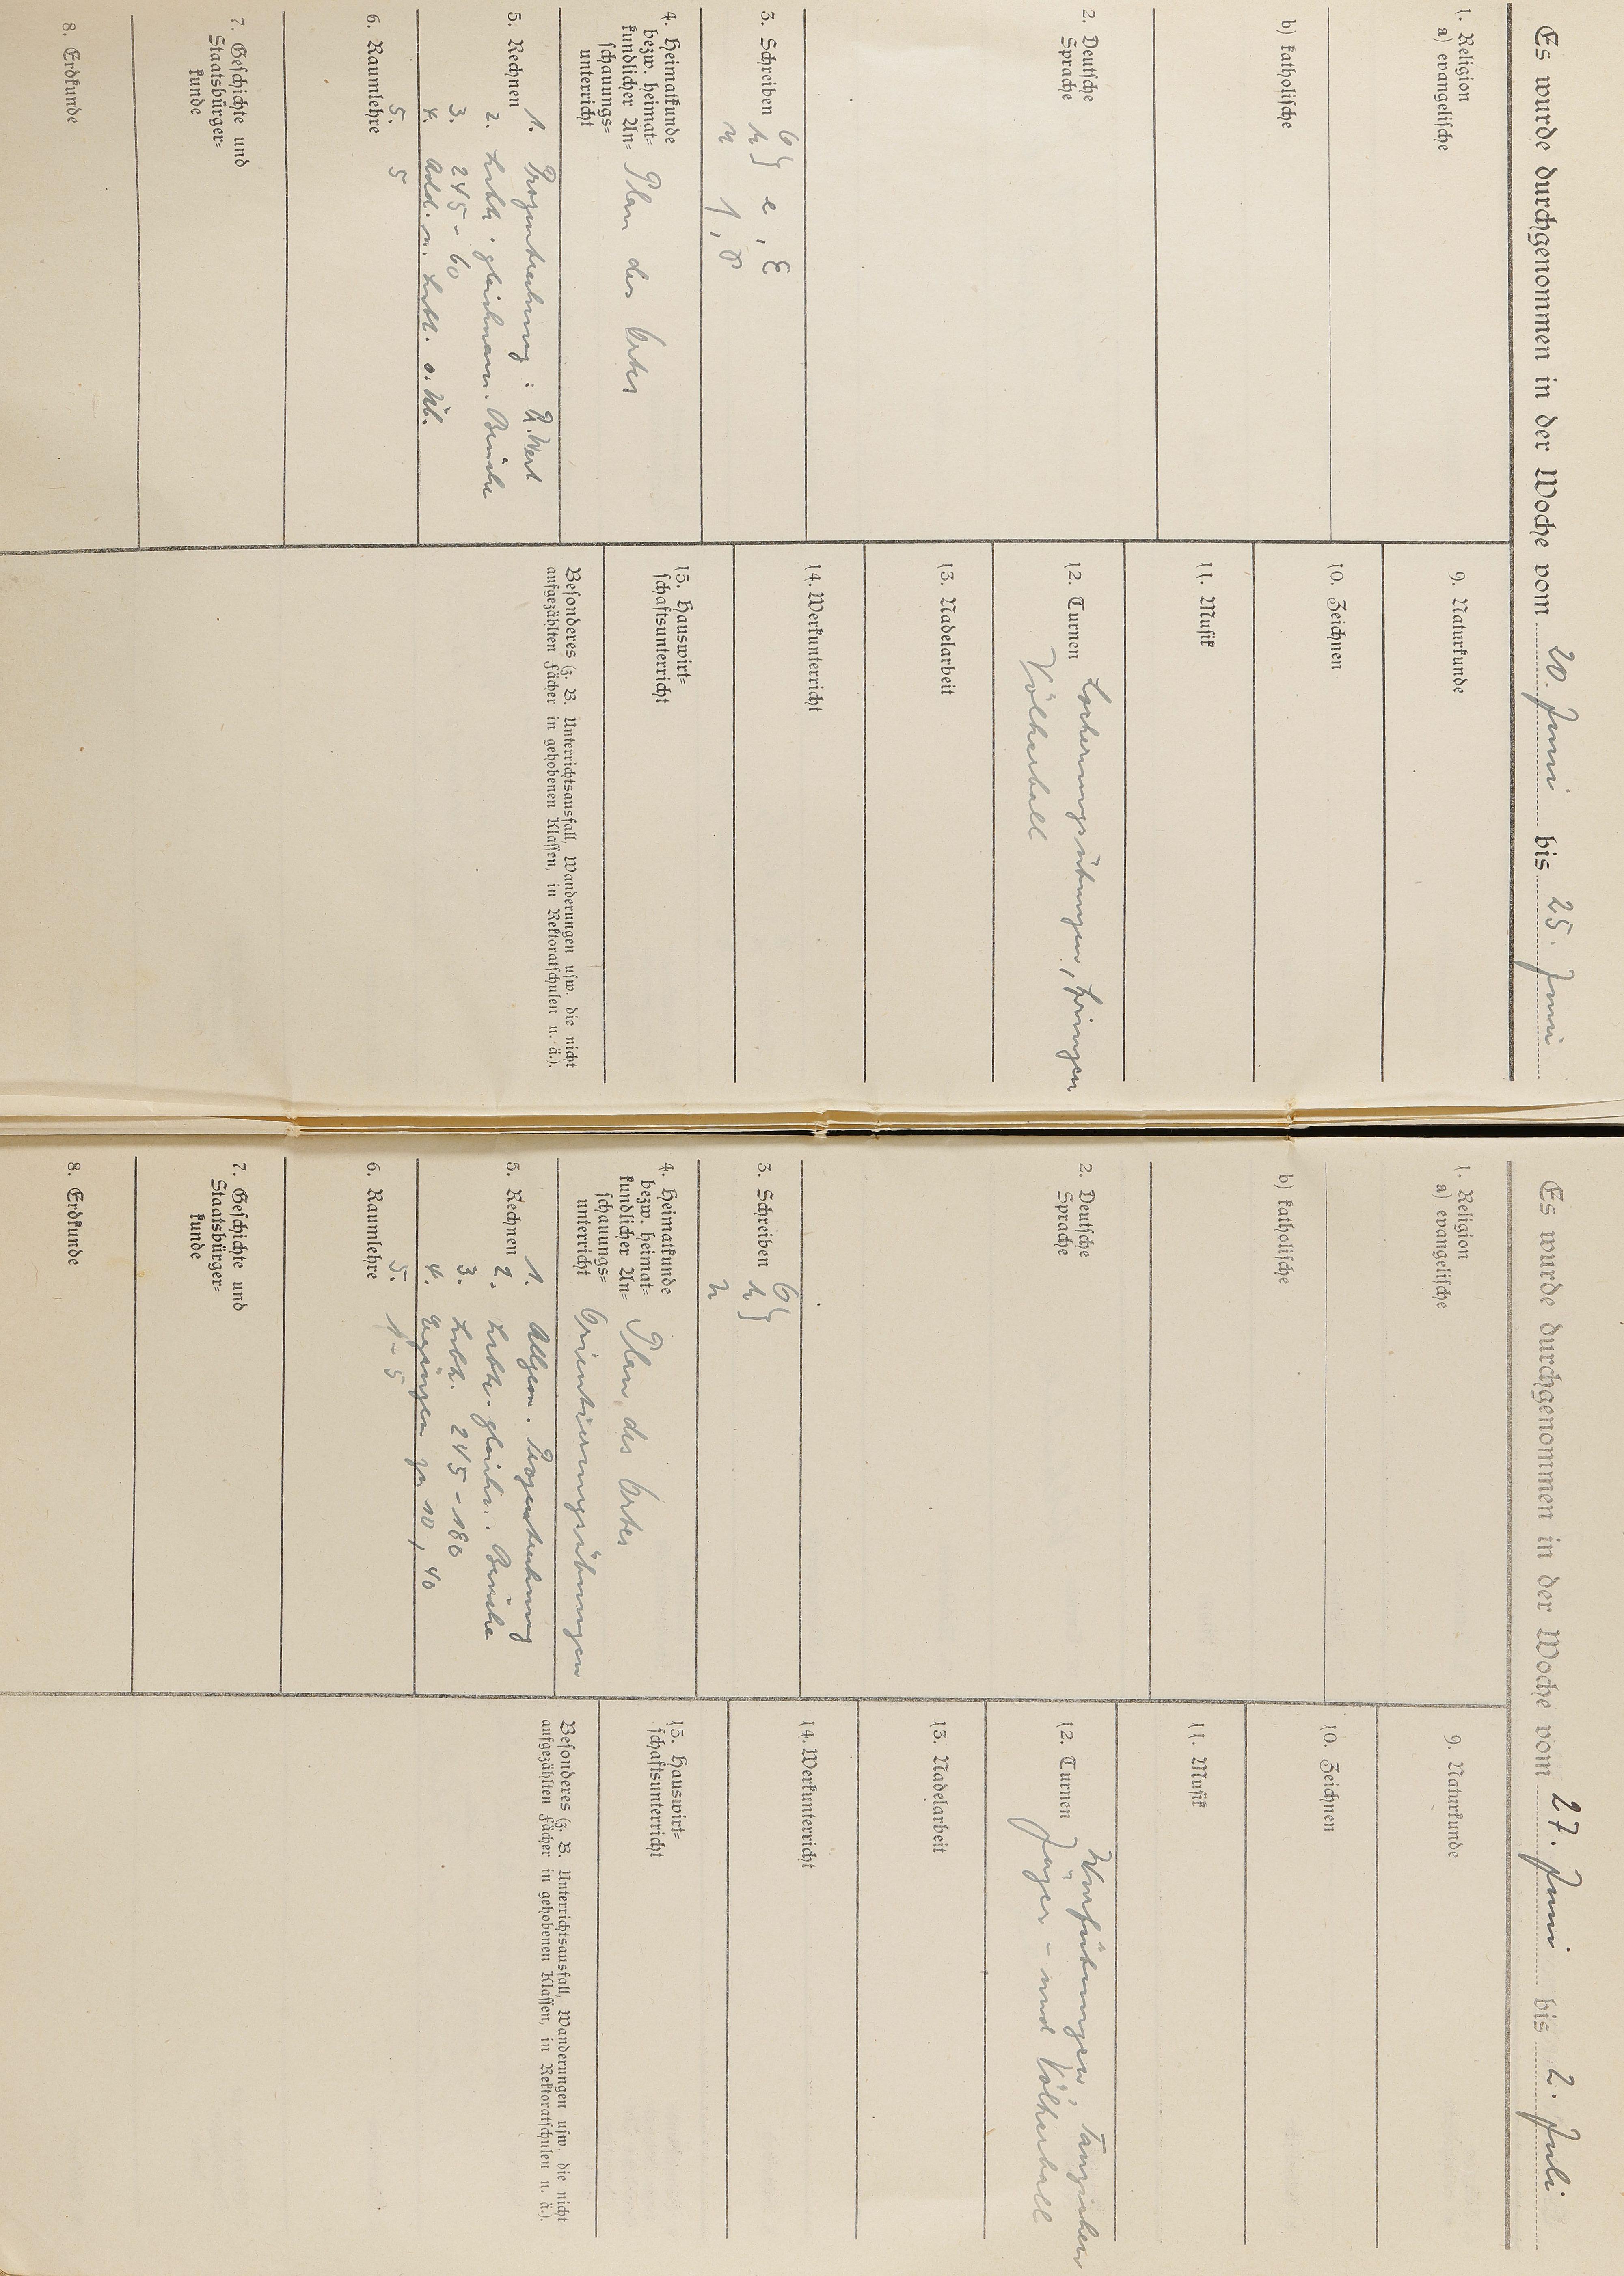 Es wurde durchgenommen in der Woche vom 20. Juni bis 25. Juni
1. Religion
a) evangelische
b) katholische
2. Deutsche
Sprache
3. Schreiben
e, E
4. Heimatkunde
bezw. heimat-
kundlicher An-
schauungs-
unterricht
Plan des Ortes
5. Rechnen
1. Prozentrechnung: P. Wert
2. Subtr. gleichnam. Brüche
3. 245 - 60
4. Add. u. Subtr. o. Üb.
5. 5
6. Raumlehre
7. Geschichte und
Staatsbürger-
kunde
8. Erdkunde
9. Naturkunde
10. Zeichnen
11. Musik
12. Turnen Lockerungsübungen, Springen
Völkerball
13. Nadelarbeit
14. Werkunterricht
15. Hauswirt-
schaftsunterricht
Besonderes (z. B. Unterrichtsausfall, Wanderungen usw. die nicht
aufgezählten Fächer in gehobenen Klassen, in Rektoratschulen u. ä.).
Es wurde durchgenommen in der Woche vom 27. Juni bis 2. Juli
1. Religion
a) evangelische
b) katholische
2. Deutsche
Sprache
3. Schreiben
4. Heimatkunde
bezw. heimat-
kundlicher An-
schauungs-
unterricht
Plan des Ortes
Orientierungsübungen
5. Rechnen
1. Allgem. Prozentrechnung
2. Subtr. gleichn. Brüche
3. Subtr. 245 - 180
4. Ergänzen zu 10, 40
5. 1 - 5
6. Raumlehre
7. Geschichte und
Staatsbürger-
kunde
8. Erdkunde
9. Naturkunde
10. Zeichnen
11. Musik
12. Turnen Wurfübungen, Tauziehen
Jäger- und Völkerball
13. Nadelarbeit
14. Werkunterricht
15. Hauswirt-
schaftsunterricht
Besonderes (z. B. Unterrichtsausfall, Wanderungen usw. die nicht
aufgezählten Fächer in gehobenen Klassen, in Rektoratschulen u. ä.).